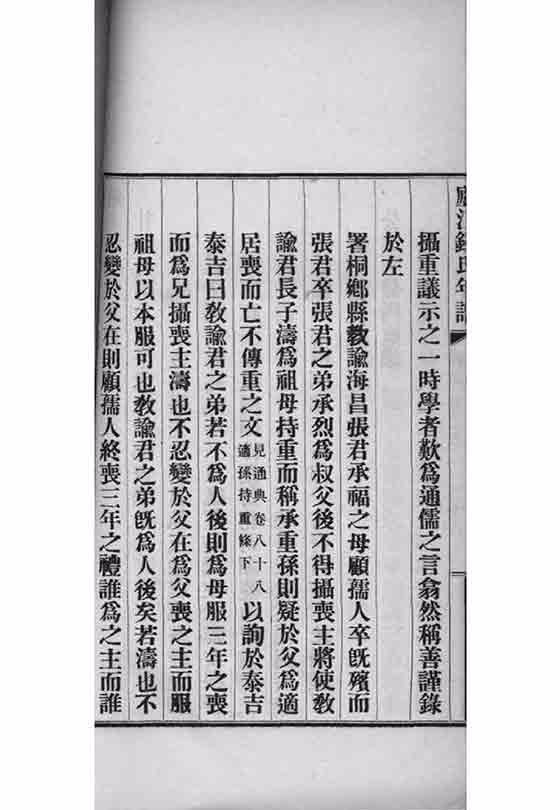 廬江錢氏年譜
攝重議示之一時學者歎爲通儒之言翕然稱善謹錄
於左
署桐鄉縣教諭海昌張君承福之母顧孺人卒旣殯而
張君卒張君之弟承烈爲叔父後不得攝喪主將使教
諭君長子濤爲祖母持重而稱承重孫則疑於父爲適
居喪而亡不傳重之文見通典卷八十八適孫持重條下以詢於泰吉
泰吉曰教諭君之弟若不爲人後則爲母服三年之喪
而爲兄攝喪主濤也不忍變於父在爲父喪之主而服
祖母以本服可也教諭君之弟旣爲人後矣若濤也不
忍變於父在則顧孺人終喪三年之禮誰爲之主而誰